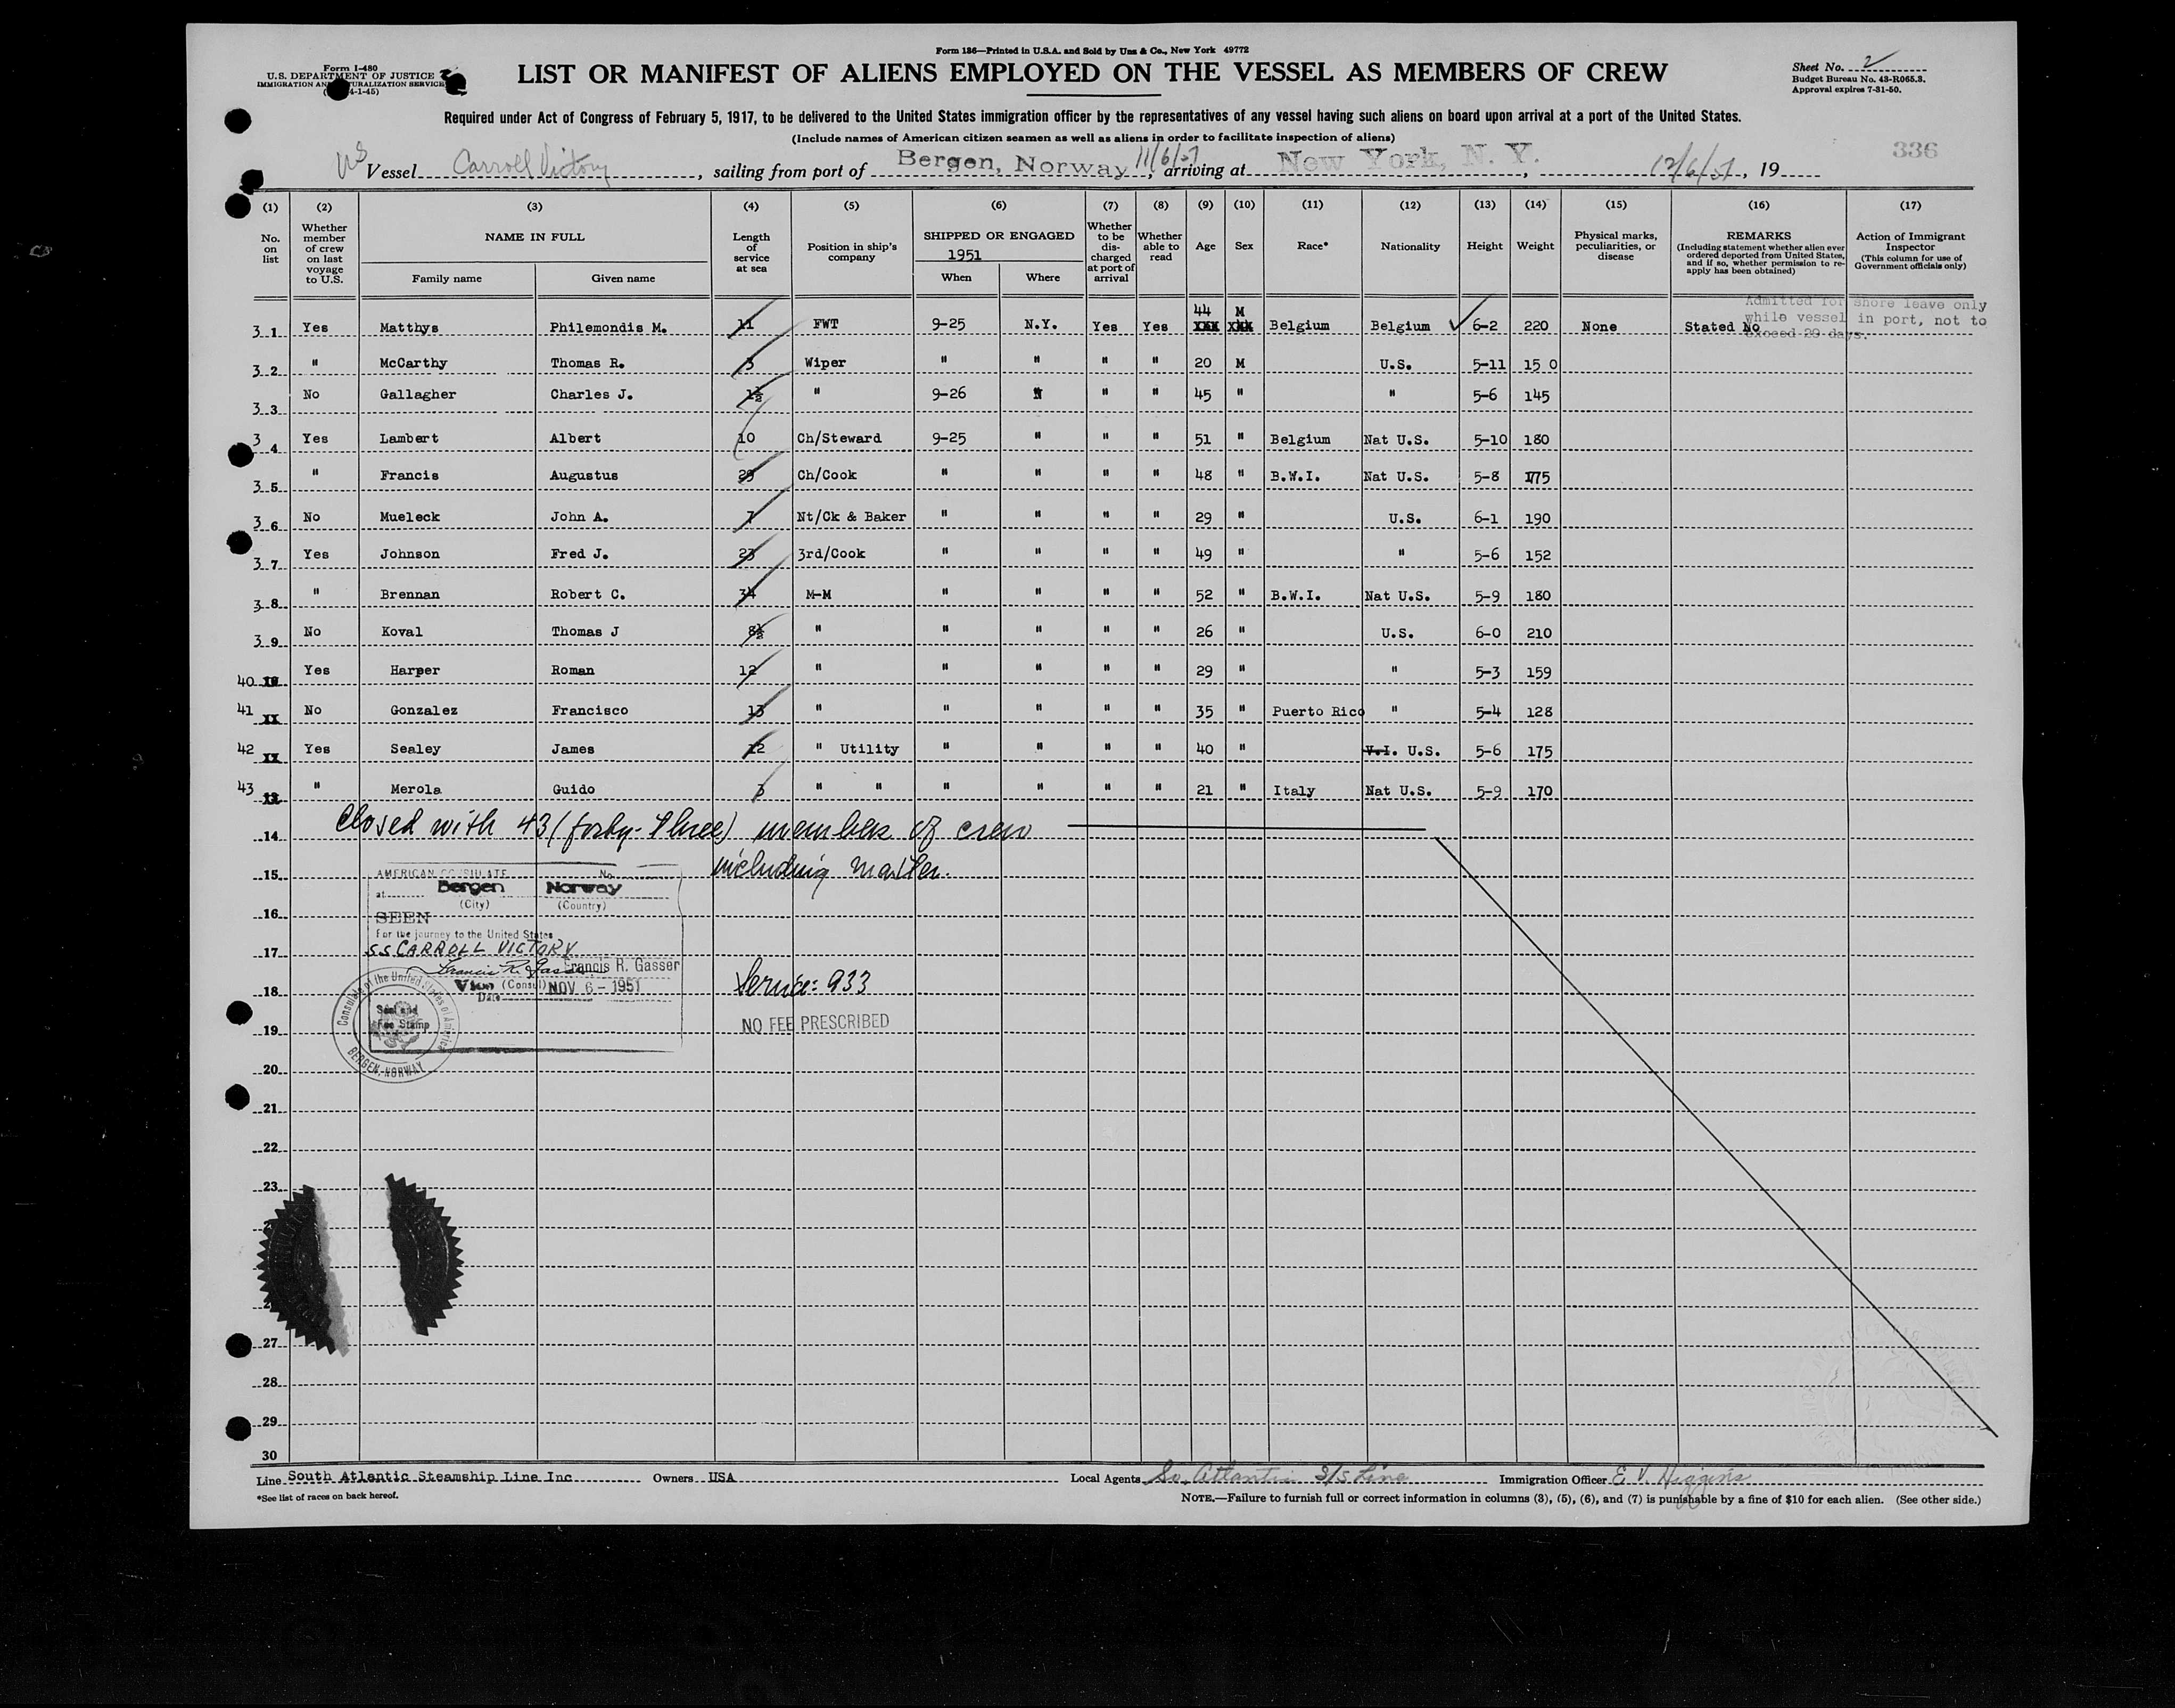 Form 136—Printed in U.S.A. and Sold by Unz & Co., New York 49772
Form I-480
U.S. DEPARTMENT OF JUSTICE
IMMIGRATION AND NATURALIZATION SERVICE
4-1-45)
LIST OR MANIFEST OF ALIENS EMPLOYED ON THE VESSEL AS MEMBERS OF CREW
Sheet No. 2
Budget Bureau No. 43-R065.3.
Approval expires 7-31-50.
Required under Act of Congress of February 5, 1917, to be delivered to the United States immigration officer by the representatives of any vessel having such aliens on board upon arrival at a port of the United States.
(Include names of American citizen seamen as well as aliens in order to facilitate inspection of aliens)
336
US Vessel Carroll Victory, sailing from port of Bergen, Norway 11/6/51, arriving at New York, N. Y., 12/6/51, 19
(1) (2) (3) (4) (5) (6) (7) (8) (9) (10) (11) (12) (13) (14) (15) (16) (17)
No. on list
Whether member of crew on last voyage to U.S.
NAME IN FULL
Family name Given name
Length of service at sea
Position in ship's company
SHIPPED OR ENGAGED
1951
When Where
Whether to be discharged at port of arrival
Whether able to read
Age Sex Race* Nationality Height Weight
Physical marks, peculiarities, or disease
REMARKS
(Including statement whether alien ever ordered deported from United States, and if so, whether permission to reapply has been obtained)
Action of Immigrant Inspector
(This column for use of Government officials only)
Admitted for shore leave only
while vessel in port, not to
exceed 29 days.
31 Yes Matthys Philemondis M. 11 FWT 9-25 N.Y. Yes Yes 44 M Belgium Belgium ✓ 6-2 220 None Stated No
32 " McCarthy Thomas R. 3 Wiper " " " " 20 M U.S. 5-11 15 0
33 No Gallagher Charles J. 1½ " 9-26 " " " 45 " " 5-6 145
34 Yes Lambert Albert 10 Ch/Steward 9-25 " " " 51 " Belgium Nat U.S. 5-10 180
35 " Francis Augustus 29 Ch/Cook " " " " 48 " B.W.I. Nat U.S. 5-8 175
36 No Mueleck John A. 7 Nt/Ck & Baker " " " " 29 " U.S. 6-1 190
37 Yes Johnson Fred J. 23 3rd/Cook " " " " 49 " " 5-6 152
38 " Brennan Robert C. 34 M-M " " " " 52 " B.W.I. Nat U.S. 5-9 180
39 No Koval Thomas J 8½ " " " " " 26 " U.S. 6-0 210
40 Yes Harper Roman 12 " " " " " 29 " " 5-3 159
41 No Gonzalez Francisco 13 " " " " " 35 " Puerto Rico " 5-4 128
42 Yes Sealey James 12 " Utility " " " " 40 " V.I. U.S. 5-6 175
43 " Merola Guido 3 " " " " " " 21 " Italy Nat U.S. 5-9 170
Closed with 43 (forty-three) members of crew
14
including master.
15
AMERICAN CONSULATE No.
at Bergen Norway
(City) (Country)
16
SEEN
for the journey to the United States
17
SS CARROLL VICTORY
Francis R. Gasser Francis R. Gasser
Vice (Consul) NOV 6 - 1951
Date
Seal and
Fee Stamp
Consulate of the United States of America
BERGEN, NORWAY
18
Service: 933
19
NO FEE PRESCRIBED
20
21
22
23
27
28
29
30
Line South Atlantic Steamship Line Inc Owners USA Local Agents So. Atlantic S/S Line Immigration Officer E. V. Higgins
*See list of races on back hereof.
NOTE.—Failure to furnish full or correct information in columns (3), (5), (6), and (7) is punishable by a fine of $10 for each alien. (See other side.)